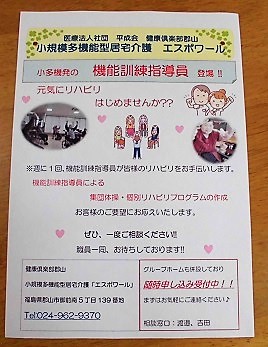 医療法人社団 平成会 健康倶楽部郡山
小規模多機能型居宅介護 エスポワール
小多機発の 機能訓練指導員 登場!!
元気にリハビリ
はじめませんか??
※週に1回、機能訓練指導員が皆様のリハビリをお手伝いします。
機能訓練指導員による
集団体操・個別リハビリプログラムの作成
お客様のご要望にお応えいたします。
ぜひ、一度ご相談ください!!
職員一同、お待ちしております!!
健康倶楽部郡山
小規模多機能型居宅介護「エスポワール」
福島県郡山市御前南5丁目139番地
Tel:024-962-9370
グループホームも併設しており
随時申し込み受付中!!
まずはお気軽にご連絡ください♪
相談窓口:渡邉、吉田